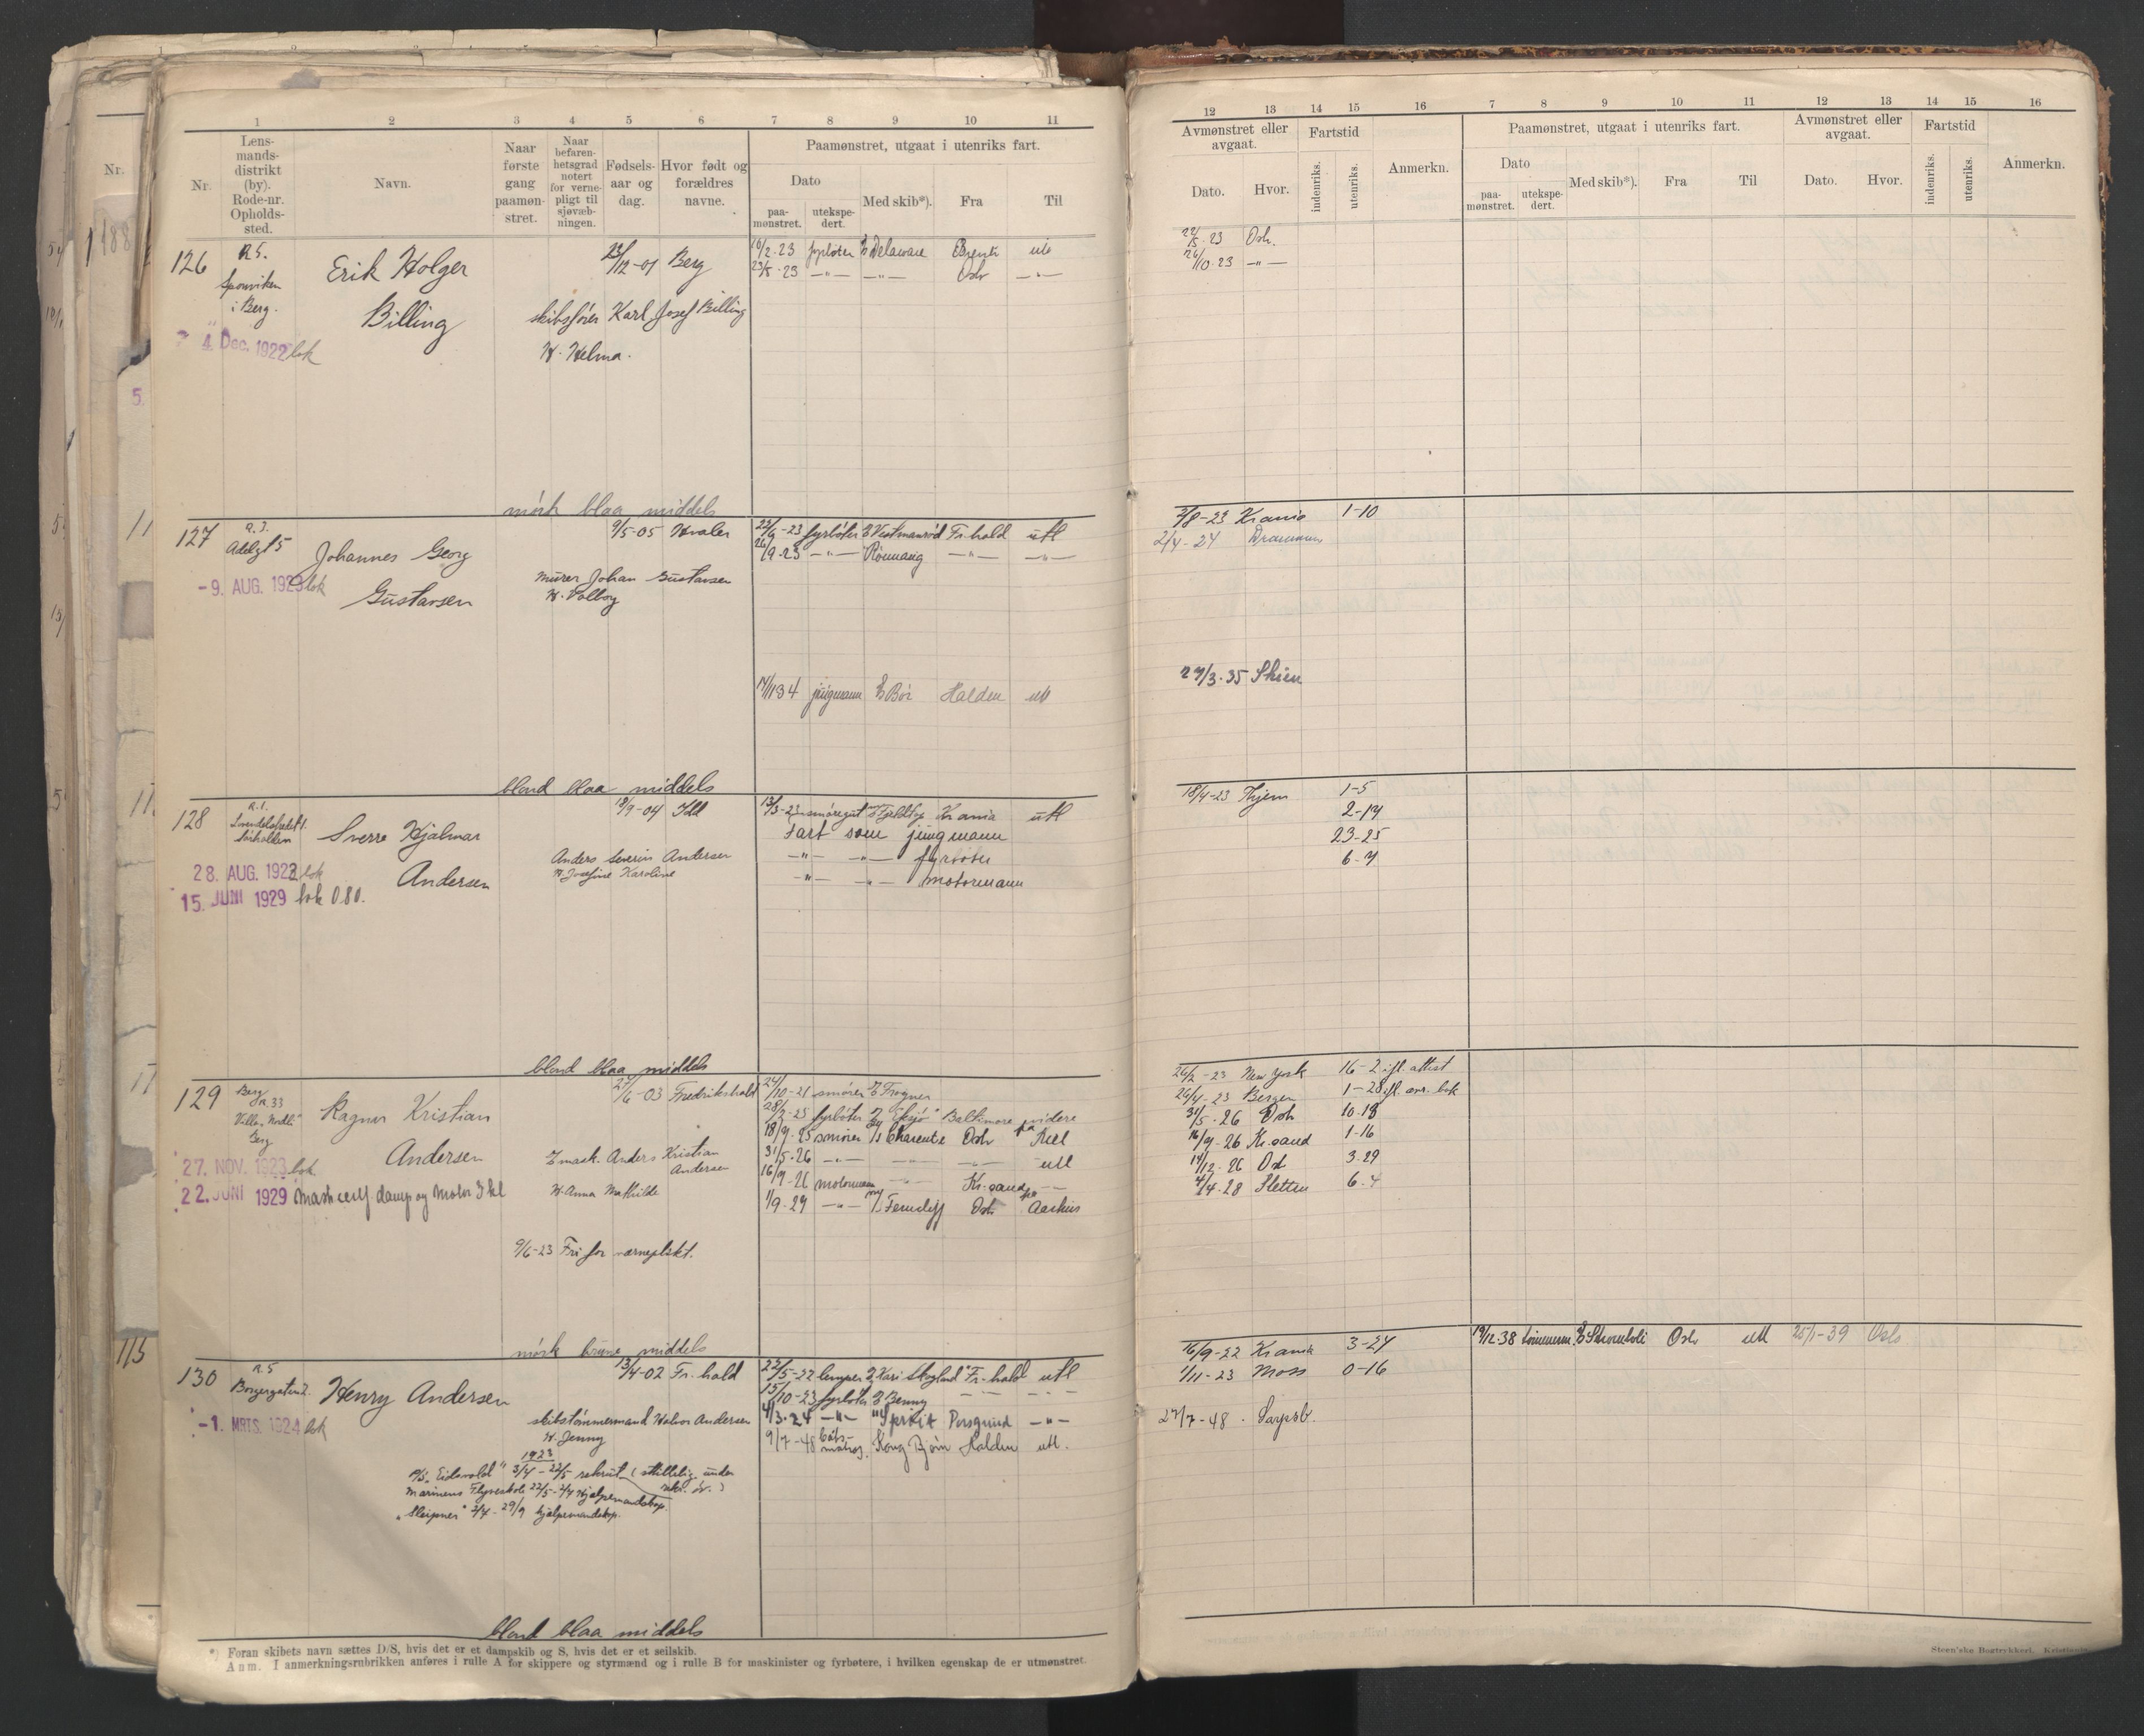 1 2 3 4 5 6 7 8 9 10 11
Nr.
Lensmandsdistrikt (by). Rode-nr. Opholdssted.
Navn.
Naar første gang paamønstret.
Naar befarenhetsgrad notert for vernepligt til sjøvæbningen.
Fødselsaar og dag.
Hvor født og forældres navne.
Paamønstret, utgaat i utenriks fart.
Dato
paamønstret.
utekspedert.
Med skib*).
Fra
Til
126 R 5. Erik Holger 12-01 Berg 10/2-23 fyrbøter Delaware utl
i Berg. 23/5-23 -"- -"- Osl -"-
Billing skibsfører Karl Josef Billing
4. Dec. 1922 lok H. Helma.
mörk blaa middels
127 R. 3. Johannes Georg 9/5-05 Hvaler 22/6-23 fyrbøter Vestmanröd Fr.hald utl
Adelgt 5 26/9-23 -"- -"- -"-
-9. AUG. 1923 lok murer Johan Gustavsen
Gustavsen H. Valborg
jungmann Bör Halden utl
blond blaa middels
128 R. 1. Sverre Hjalmar 18/9-04 Idd 13/3-23 smøregut Kr.ania utl
Fart som jungmann
Anders Severin Andersen -"- -"- fyrbøter
28. AUG. 1922 lok Andersen H. Josefine Karoline -"- -"- motormann
15. JUNI 1929 lok 080.
blond blaa middels
129 Berg R. 33 Ragnar Kristian 6-03 Fredrikshald 24/10-21 smører Frogner
Berg fyrbøter Baltimore videre
18/9-25 smører Charente Osl
Andersen mask. Anders Kristian Andersen 31/5-26 -"- utl
27. NOV. 1923 lok 16/9-26 motormann Kr.sand
22. JUNI 1929 Mask cert damp og Motor 3 kl H. Anna Mathilde 1/9-29 -"- Ferncliff Osl Aarhus
9/6-23 Fri for værneplikt.
mörk brune middels
130 R. 5 Henry Andersen 13/4-02 Fr.hald 22/5-22 lemper Kari Skogland Fr.hald utl
Borgergaten 15/10-23 fyrbøter Benny
skibstømmermand Halvor Andersen 4/3-24 -"- Sprkit Porsgrund -"-
-1. MRTS. 1924 lok H. Jenny 9/7-48 båtsmatros. Kong Bjørn Halden utl.
1923
"Eidsvold" 3/4-22/5 rekrut (skillelig under
Marinens Flyveskole 22/5-2/7 Hjælpemandskap.
"Sleipner" 2/7-29/9 hjælpemandskap.
blond blaa middels
*) Foran skibets navn sættes D/S, hvis det er et dampskib og S, hvis det er et seilskib.
Anm. I anmerkningsrubrikken anføres i rulle A for skippere og styrmænd og i rulle B for maskinister og fyrbøtere, i hvilken egenskap de er utmønstret.
12 13 14 15 16 7 8 9 10 11 12 13 14 15 16
Avmønstret eller avgaat.
Fartstid
Anmerkn.
Paamønstret, utgaat i utenriks fart.
Avmønstret eller avgaat.
Fartstid
Anmerkn.
Dato.
Hvor.
indenriks.
utenriks.
Dato
paamønstret.
utekspedert.
Med skib*).
Fra
Til
Dato.
Hvor.
indenriks.
utenriks.
22/5-23 Osl.
26/10-23 -"-
2/8-23 Kr.ania 1-10
2/4-24 Drammen
27/3-35 Skien
18/4-23 Hjem 1-5
2-14
23-25
6-7
26/2-23 New York 16-2 ifl. attest
26/4-23 Bergen 1-28 ifl. avr. bok
31/5-26 Osl 10-13
16/9-26 Kr.sand 1-16
14/12-26 Osl 3-29
4/4-28 Sletten 6-4
16/9-22 Kr.ania 3-24 19/12-38 tømmerm. Osl utl 25/1-39 Oslo
1/11-23 Moss 0-16
27/7-48. Sarpsb.
Steen'ske Bogtrykkeri. Kristiania